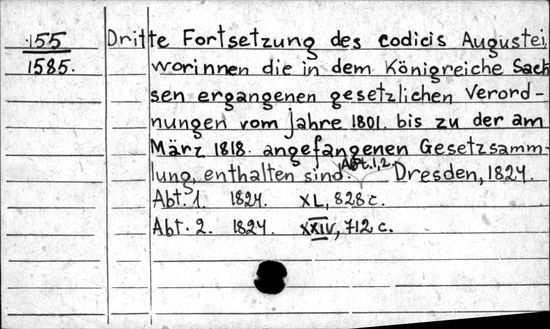 155 Dritte Fortsetzung des codicis Augustei,
1585. worinnen die in dem Königreiche Sach
sen ergangenen gesetzlichen Verord-
nungen vom Jahre 1801. bis zu der am
März 1818. angefangenen Gesetzsamm-
lung, enthalten sind. Abt. 1,2. Dresden, 1824.
Abt. 1. 1824. XL, 828 c.
Abt. 2. 1824. XXIV, 712 c.